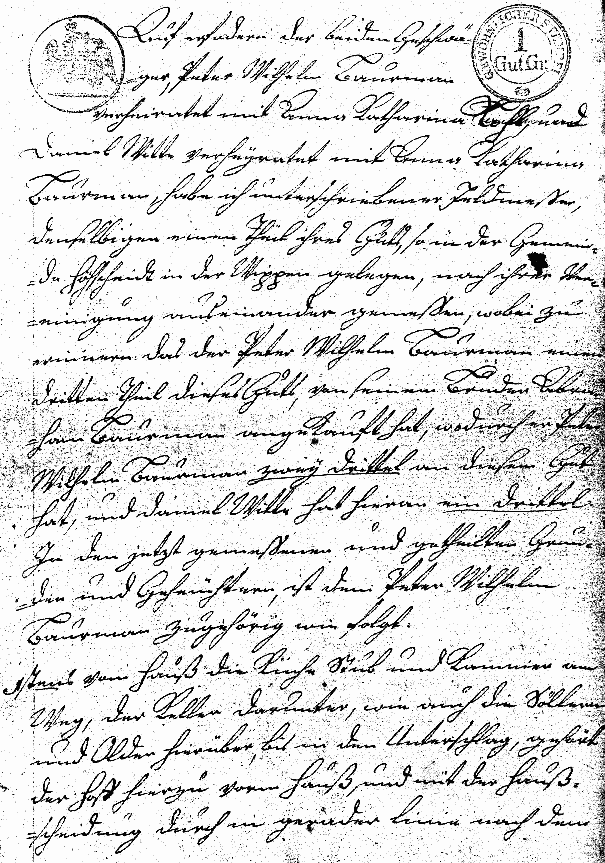 Auf erfodern der beiden Geschwä-
ger, Peter Wilhelm Baurman
verheiratet mit Anna Katharina und
Daniel Witte verheyratet mit Anna Katharina
Baurman, habe ich unterschriebener Feldmesser,
denselbigen einen Theil ihres Guts, so in der Gemein-
-de Höhscheidt in der Wippen gelegen, nach ihrer Ver-
-einigung auseinander gemessen, wobei zu
erinnern das der Peter Wilhelm Baurman einen
dritten Theil dieses Guts, von seinem Bruder Abra-
-ham Baurman angekauft hat, wodurch er Peter
Wilhelm Baurman zwey drittel an diesem Gut
hat, und Daniel Witte hat hieran ein drittel.
In den jetzt gemessenen und getheilten Grün-
-den und Geheuchtern, ist dem Peter Wilhelm
Baurman zugehörig wie folgt:
1stens vom Hauß die Küche Stub und Kammer am
Weg, der Keller darunter, wie auch die Söllern
und hierüber, bis in den Unterschlag, gehört
der Hoff hierzu vorm Hauß, und mit der Hauß-
-scheidung durch in gerader Linie nach dem
1
GutGr.